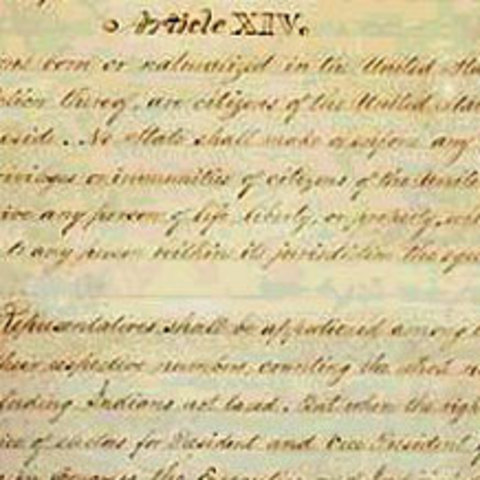 Article XIV.
or naturalized in the United
thereof, are citizens of the United
reside. No State shall make or enforce any
or immunities of citizens of the United
any person of life, liberty, or property,
to any person within its jurisdiction the
Representatives shall be apportioned among
their respective numbers, counting the whole
Indians not taxed. But when the right
of electors for President and Vice President
in Congress, the Executive and